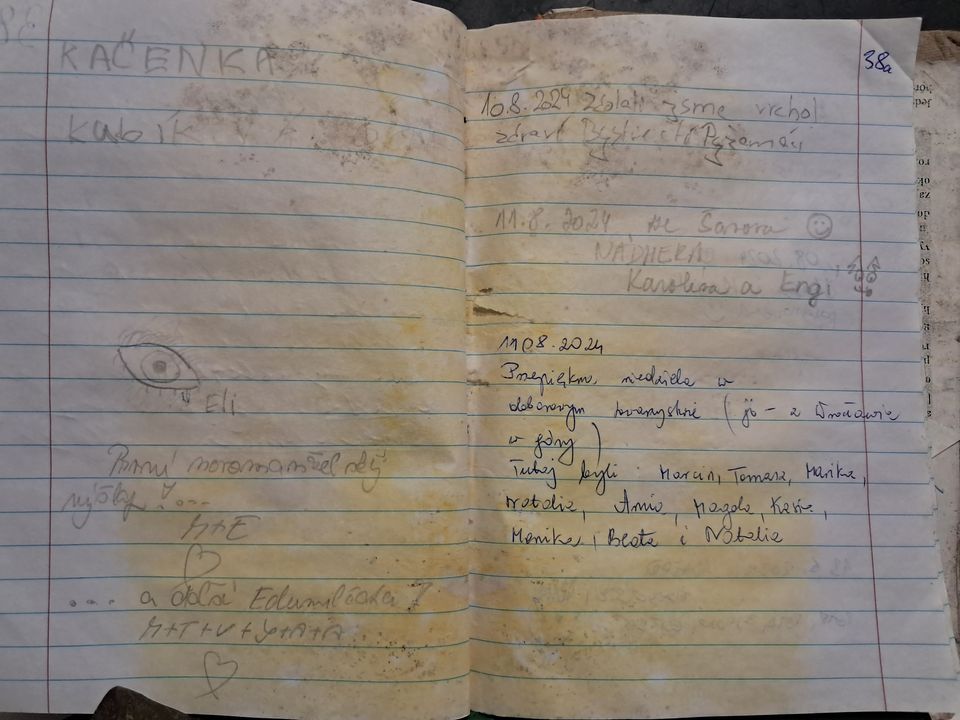 KAČENKA
Kubík
Eli
První novomanželský
výšlap
M+E
.... a další
M+T+V+J+A+A
38a
10.8.2024 Zdolali jsme vrchol
zdraví
11.8.2024
NÁDHERA
Karolína a Engi
11.08.2024
Przepiękna niedziela w
doborowym towarzystwie (jo - z Wrocławia
w góry)
Tutaj byli: Marcin, Tomasz, Marika,
Natalia, Ania, Magda, Kasia,
Monika, Beata i Natalia